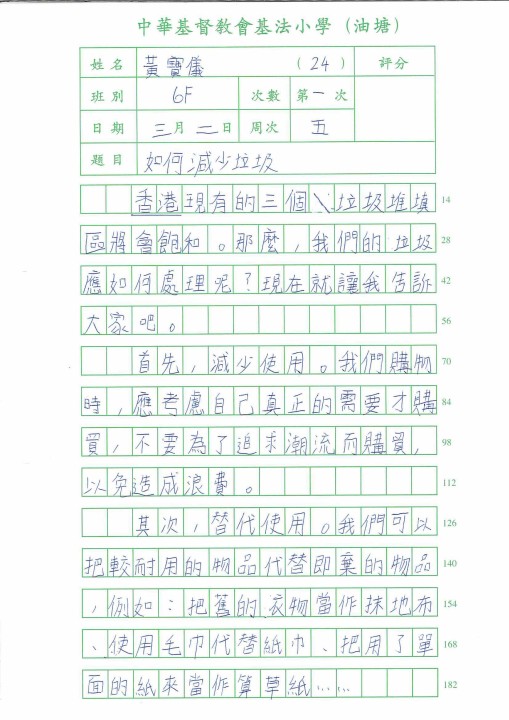 中華基督教會基法小學（油塘）
姓名 黃寶儀 (24) 評分
班別 6F 次數 第一次
日期 三月二日 周次 五
題目 如何減少垃圾
香港現有的三個\垃圾堆填 14
區將會飽和。那麼，我們的垃圾 28
應如何處理呢？現在就讓我告訴 42
大家吧。 56
首先，減少使用。我們購物 70
時，應考慮自己真正的需要才購 84
買，不要為了追求潮流而購買， 98
以免造成浪費。 112
其次，替代使用。我們可以 126
把較耐用的物品代替即棄的物品 140
，例如：把舊的衣物當作抹地布 154
、使用毛巾代替紙巾、把用了單 168
面的紙來當作算草紙…… 182